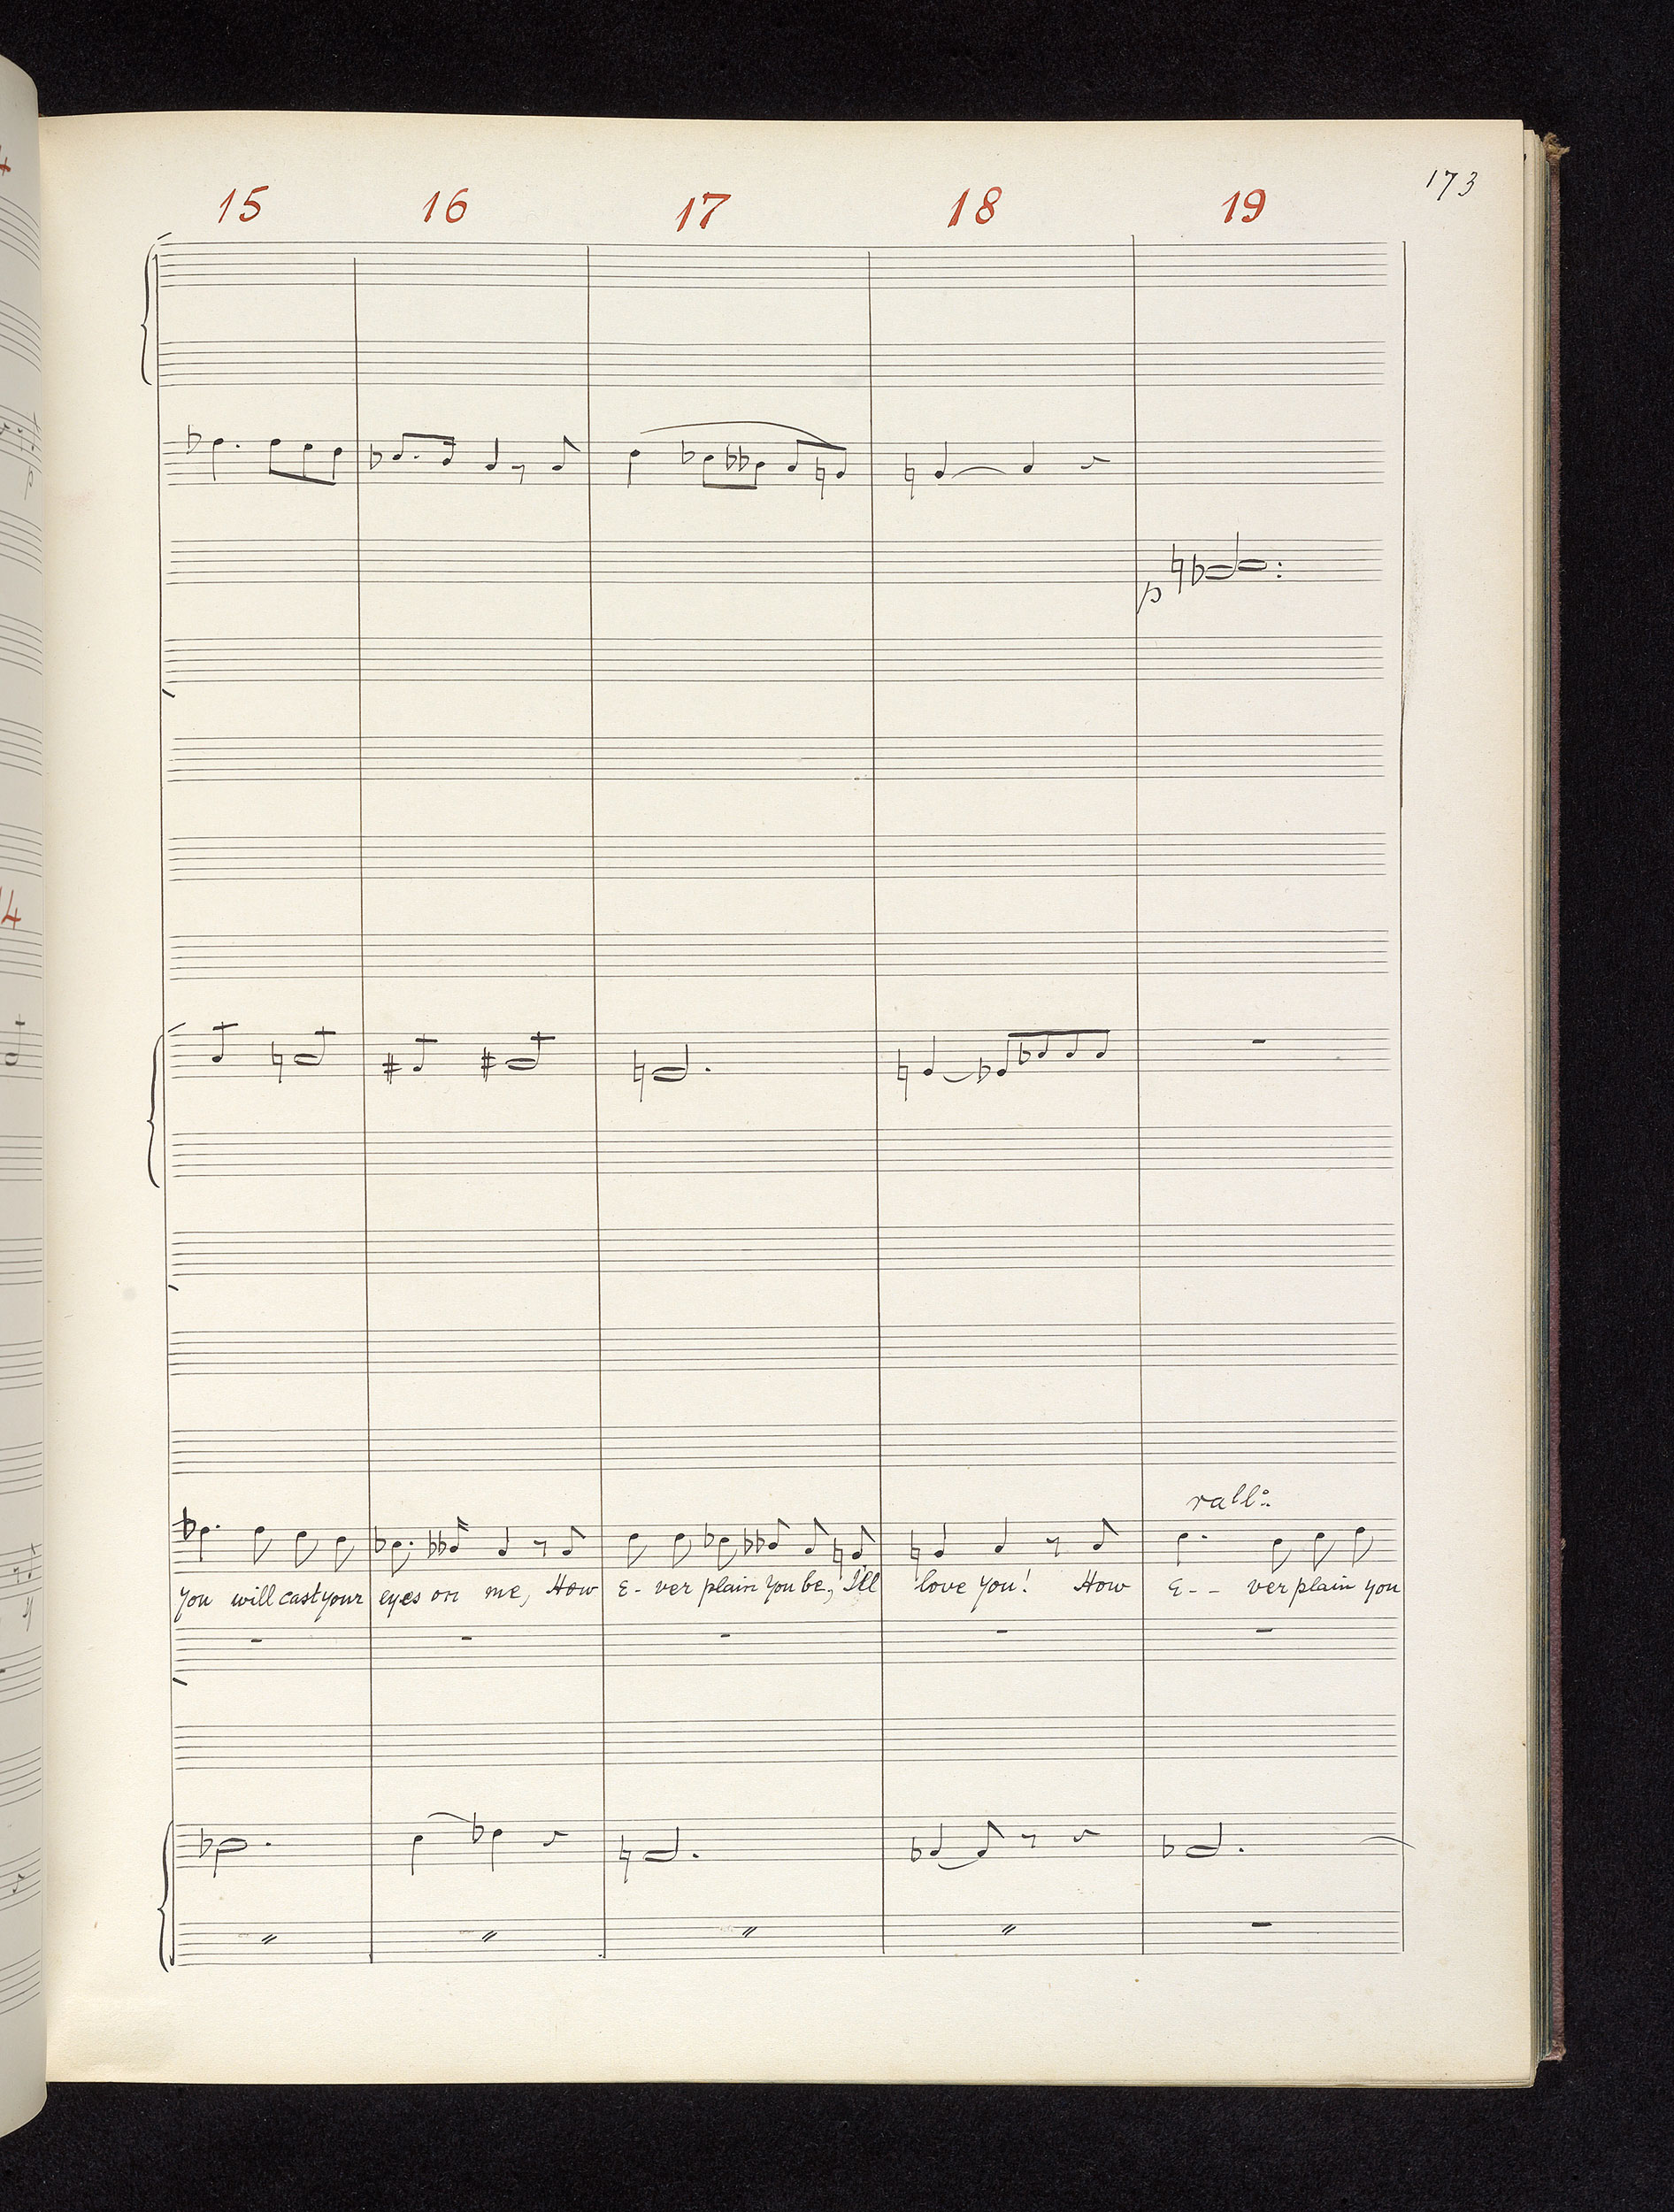 173
15 16 17 18 19
p
rallo..
you will cast your eyes on me, How E- ver plain you be, I'll love you! How E- - ver plain you